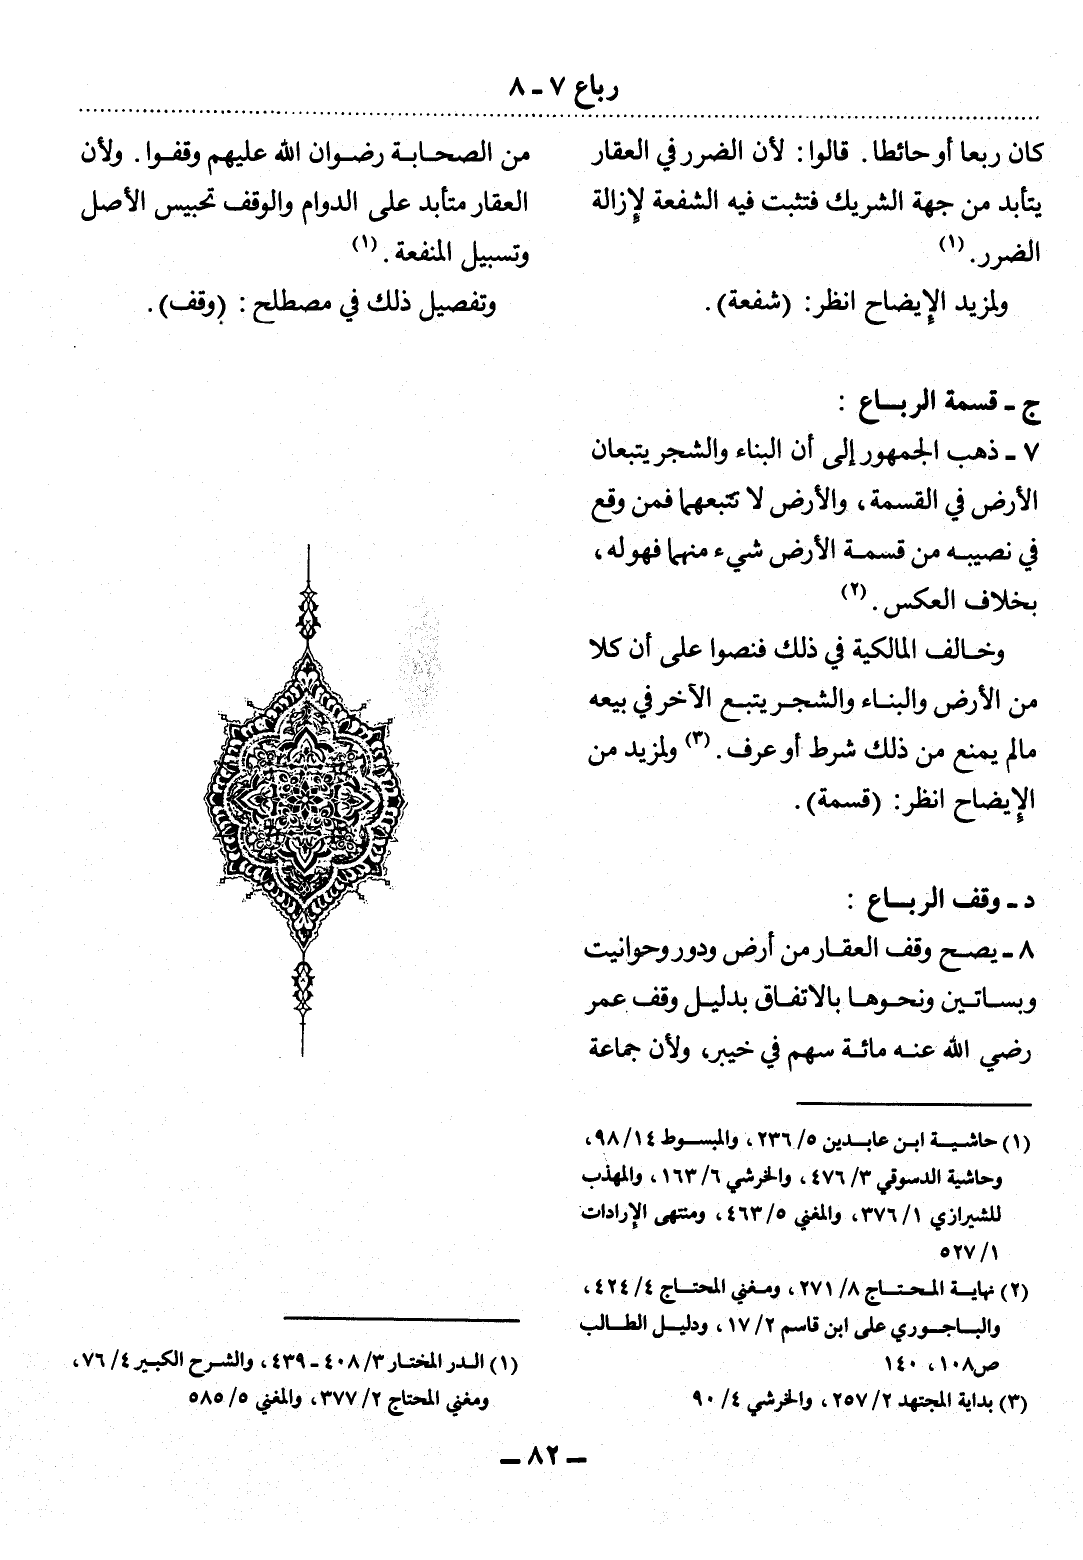 رباع ٧ ـ ٨
كان ربعا أو حائطا . قالوا : لأن الضرر في العقار
يتأبد من جهة الشريك فتثبت فيه الشفعة لإزالة
الضرر . (١)
ولمزيد الإيضاح انظر : (شفعة) .
ج ـ قسمة الرباع :
٧ ـ ذهب الجمهور إلى أن البناء والشجر يتبعان
الأرض في القسمة ، والأرض لا تتبعهما فمن وقع
في نصيبه من قسمة الأرض شيء منهما فهو له ،
بخلاف العكس . (٢)
وخالف المالكية في ذلك فنصوا على أن كلا
من الأرض والبناء والشجر يتبع الآخر في بيعه
مالم يمنع من ذلك شرط أو عرف . (٣) ولمزيد من
الإيضاح انظر : (قسمة) .
د ـ وقف الرباع :
٨ ـ يصح وقف العقار من أرض ودور وحوانيت
وبساتين ونحوها بالاتفاق بدليل وقف عمر
رضي الله عنه مائة سهم في خيبر ، ولأن جماعة
(١) حاشية ابن عابدين ٥/ ٢٣٦ ، والمبسوط ١٤/ ٩٨ ،
وحاشية الدسوقي ٣/ ٤٧٦ ، والخرشي ٦/ ١٦٣ ، والمهذب
للشيرازي ١/ ٣٧٦ ، والمغني ٥/ ٤٦٣ ، ومنتهى الإرادات
١/ ٥٢٧
(٢) نهاية المحتاج ٨/ ٢٧١ ، ومغني المحتاج ٤/ ٤٢٤ ،
والباجوري على ابن قاسم ٢/ ١٧ ، ودليل الطالب
ص١٠٨ ، ١٤٠
(٣) بداية المجتهد ٢/ ٢٥٧ ، والخرشي ٤/ ٩٠
من الصحابة رضوان الله عليهم وقفوا . ولأن
العقار متأبد على الدوام والوقف تحبيس الأصل
وتسبيل المنفعة . (١)
وتفصيل ذلك في مصطلح : (وقف) .
(١) الدر المختار ٣/ ٤٠٨ ـ ٤٣٩ ، والشرح الكبير ٤/ ٧٦ ،
ومغني المحتاج ٢/ ٣٧٧ ، والمغني ٥/ ٥٨٥
ـ ٨٢ ـ